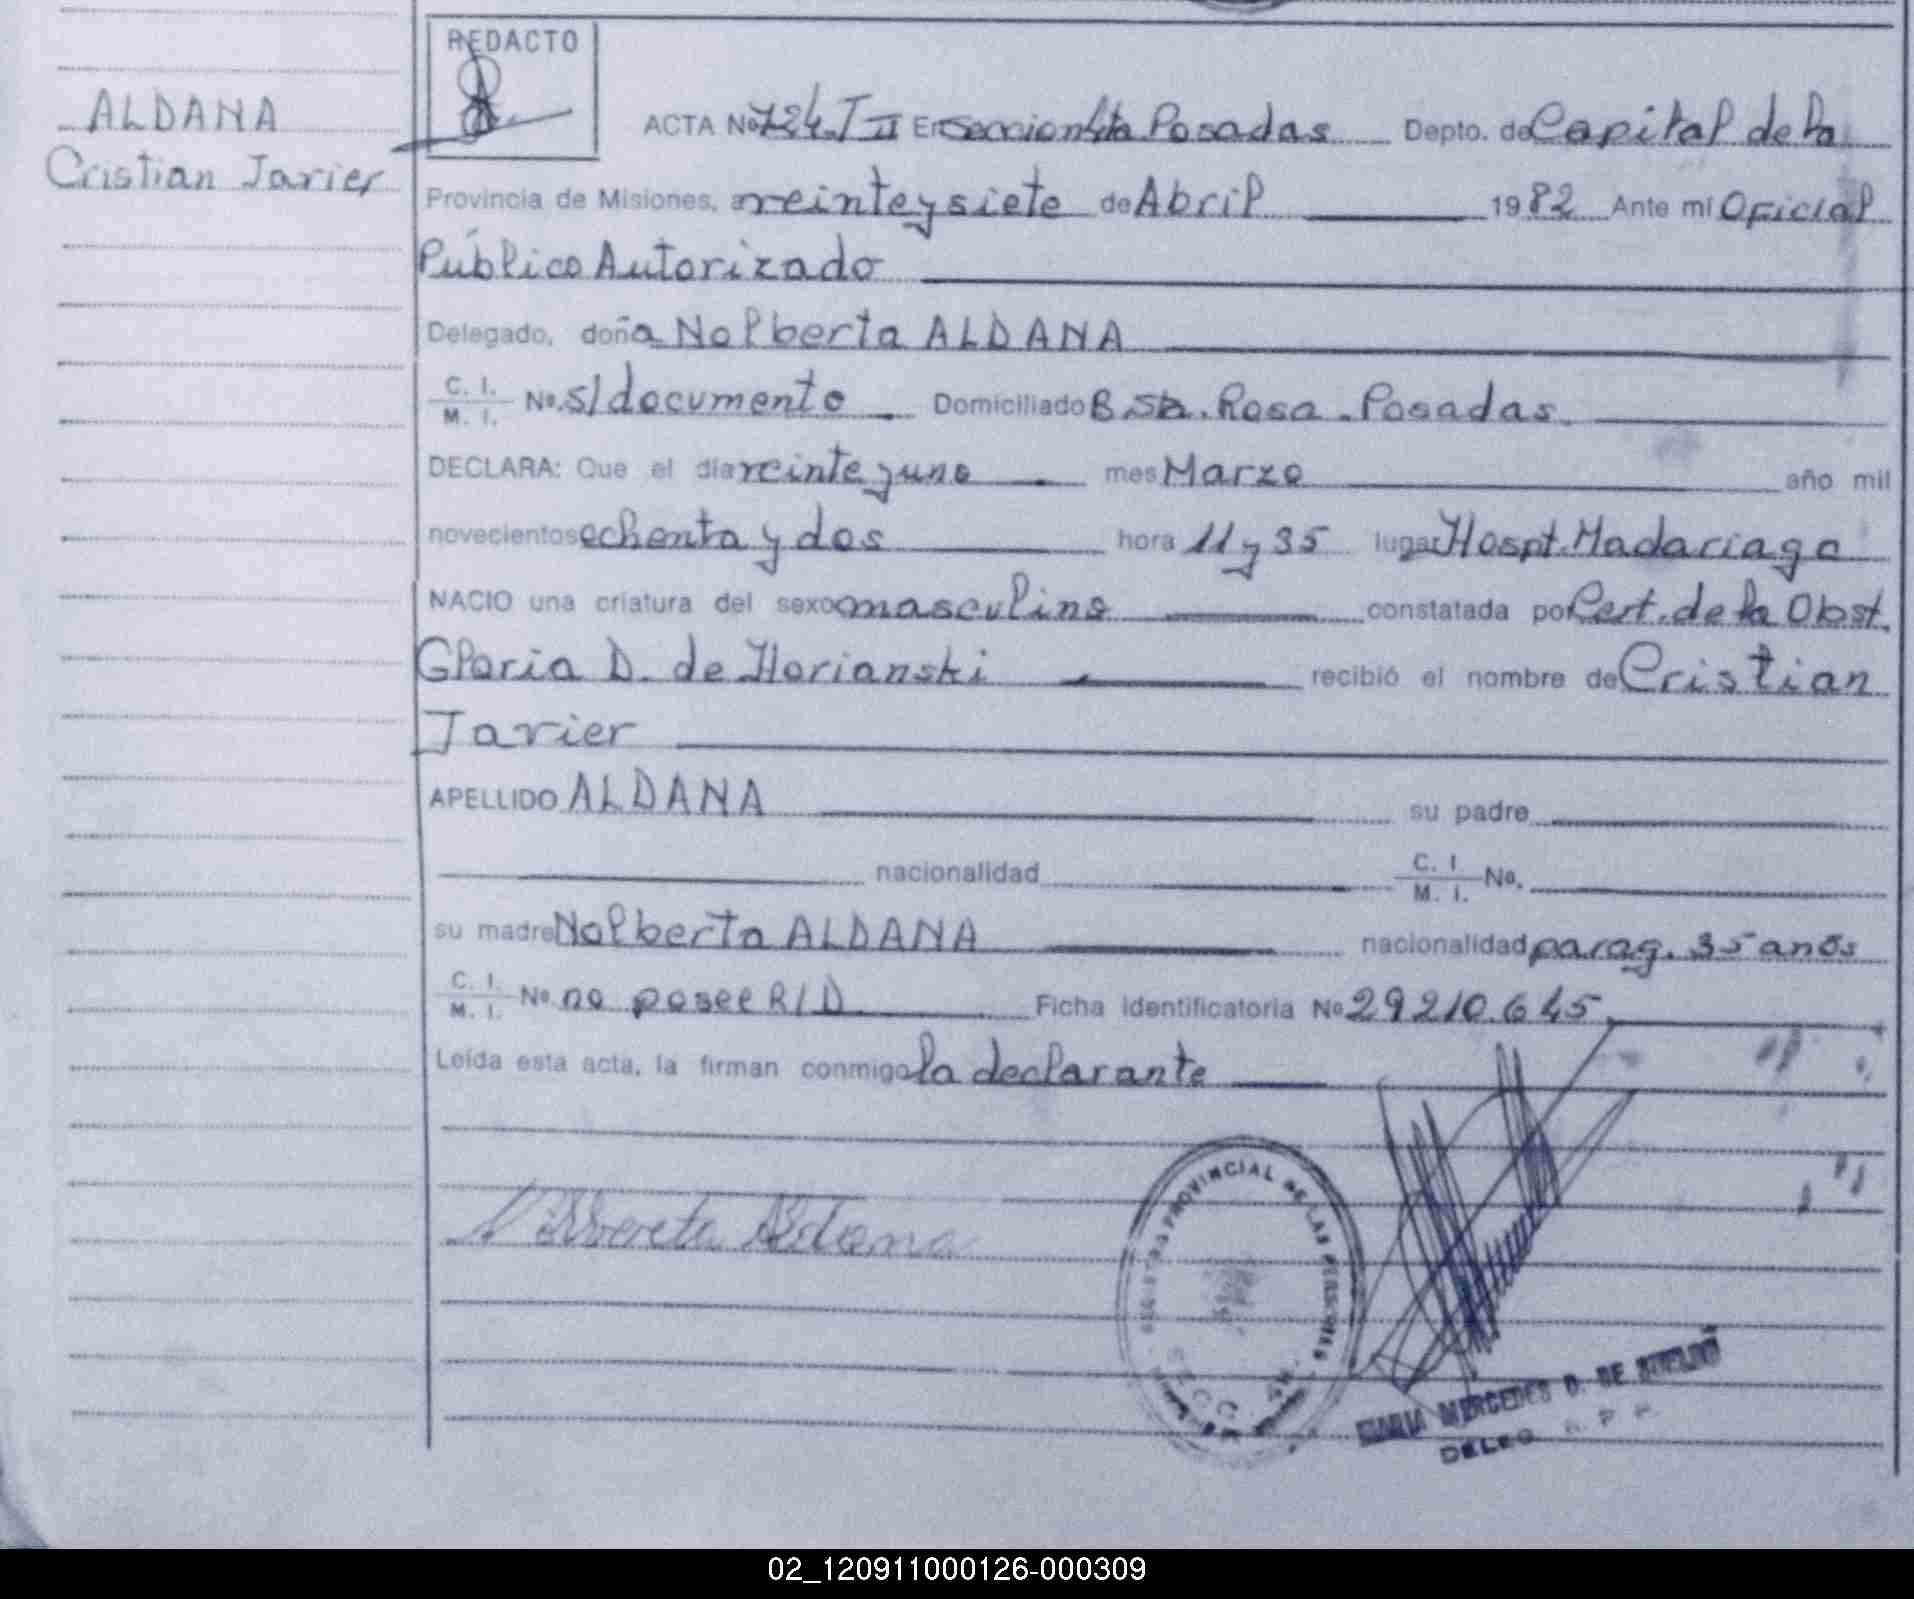 REDACTO
ALDANA
Cristian Javier
ACTA No 724 T II En Seccion 4ta Posadas Depto. de Capital de la
Provincia de Misiones, a veinte y siete de Abril 1982 Ante mi Oficial
Público Autorizado
Delegado, doña Nolberta ALDANA
C. I.
M. I. No. s/documento Domiciliado B. Sta. Rosa. Posadas.
DECLARA: Que el día veinte y uno mes Marzo año mil
novecientos ochenta y dos hora 11 y 35 lugar Hospt. Madariaga
NACIO una criatura del sexo masculino constatada por Cert. de la Obst.
Gloria D. de Horianski recibió el nombre de Cristian
Javier
APELLIDO ALDANA su padre
nacionalidad C. I.
M. I. No.
su madre Nolberta ALDANA nacionalidad parag. 35 años
C. I.
M. I. No. no posee R/D Ficha identificatoria No 29210.645.
Leída esta acta, la firman conmigo la declarante
Aldana
PROVINCIAL DE LAS PERSONAS
SECC. 4ta
MARIA MERCEDES D. DE
DELEG R. P. P.
02_120911000126-000309